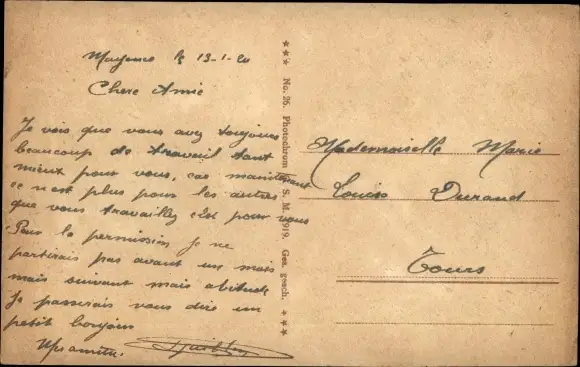 Mayence le 13-1-20
Chere Amie
Je vois que vous avez toujours
beaucoup de travail tant
mieux pour vous, car maintenant
ce n'est plus pour les autres
que vous travaillez c'est pour vous
Pour la permission je ne
partirais pas avant un mois
mais suivant mais abitude
Je passerais vous dire un
petit bonjour
Mes amitiés
*** No. 26. Photochrom S. M. 1919. Ges. gesch. ***
Mademoiselle Marie
Louise Durand
Tours